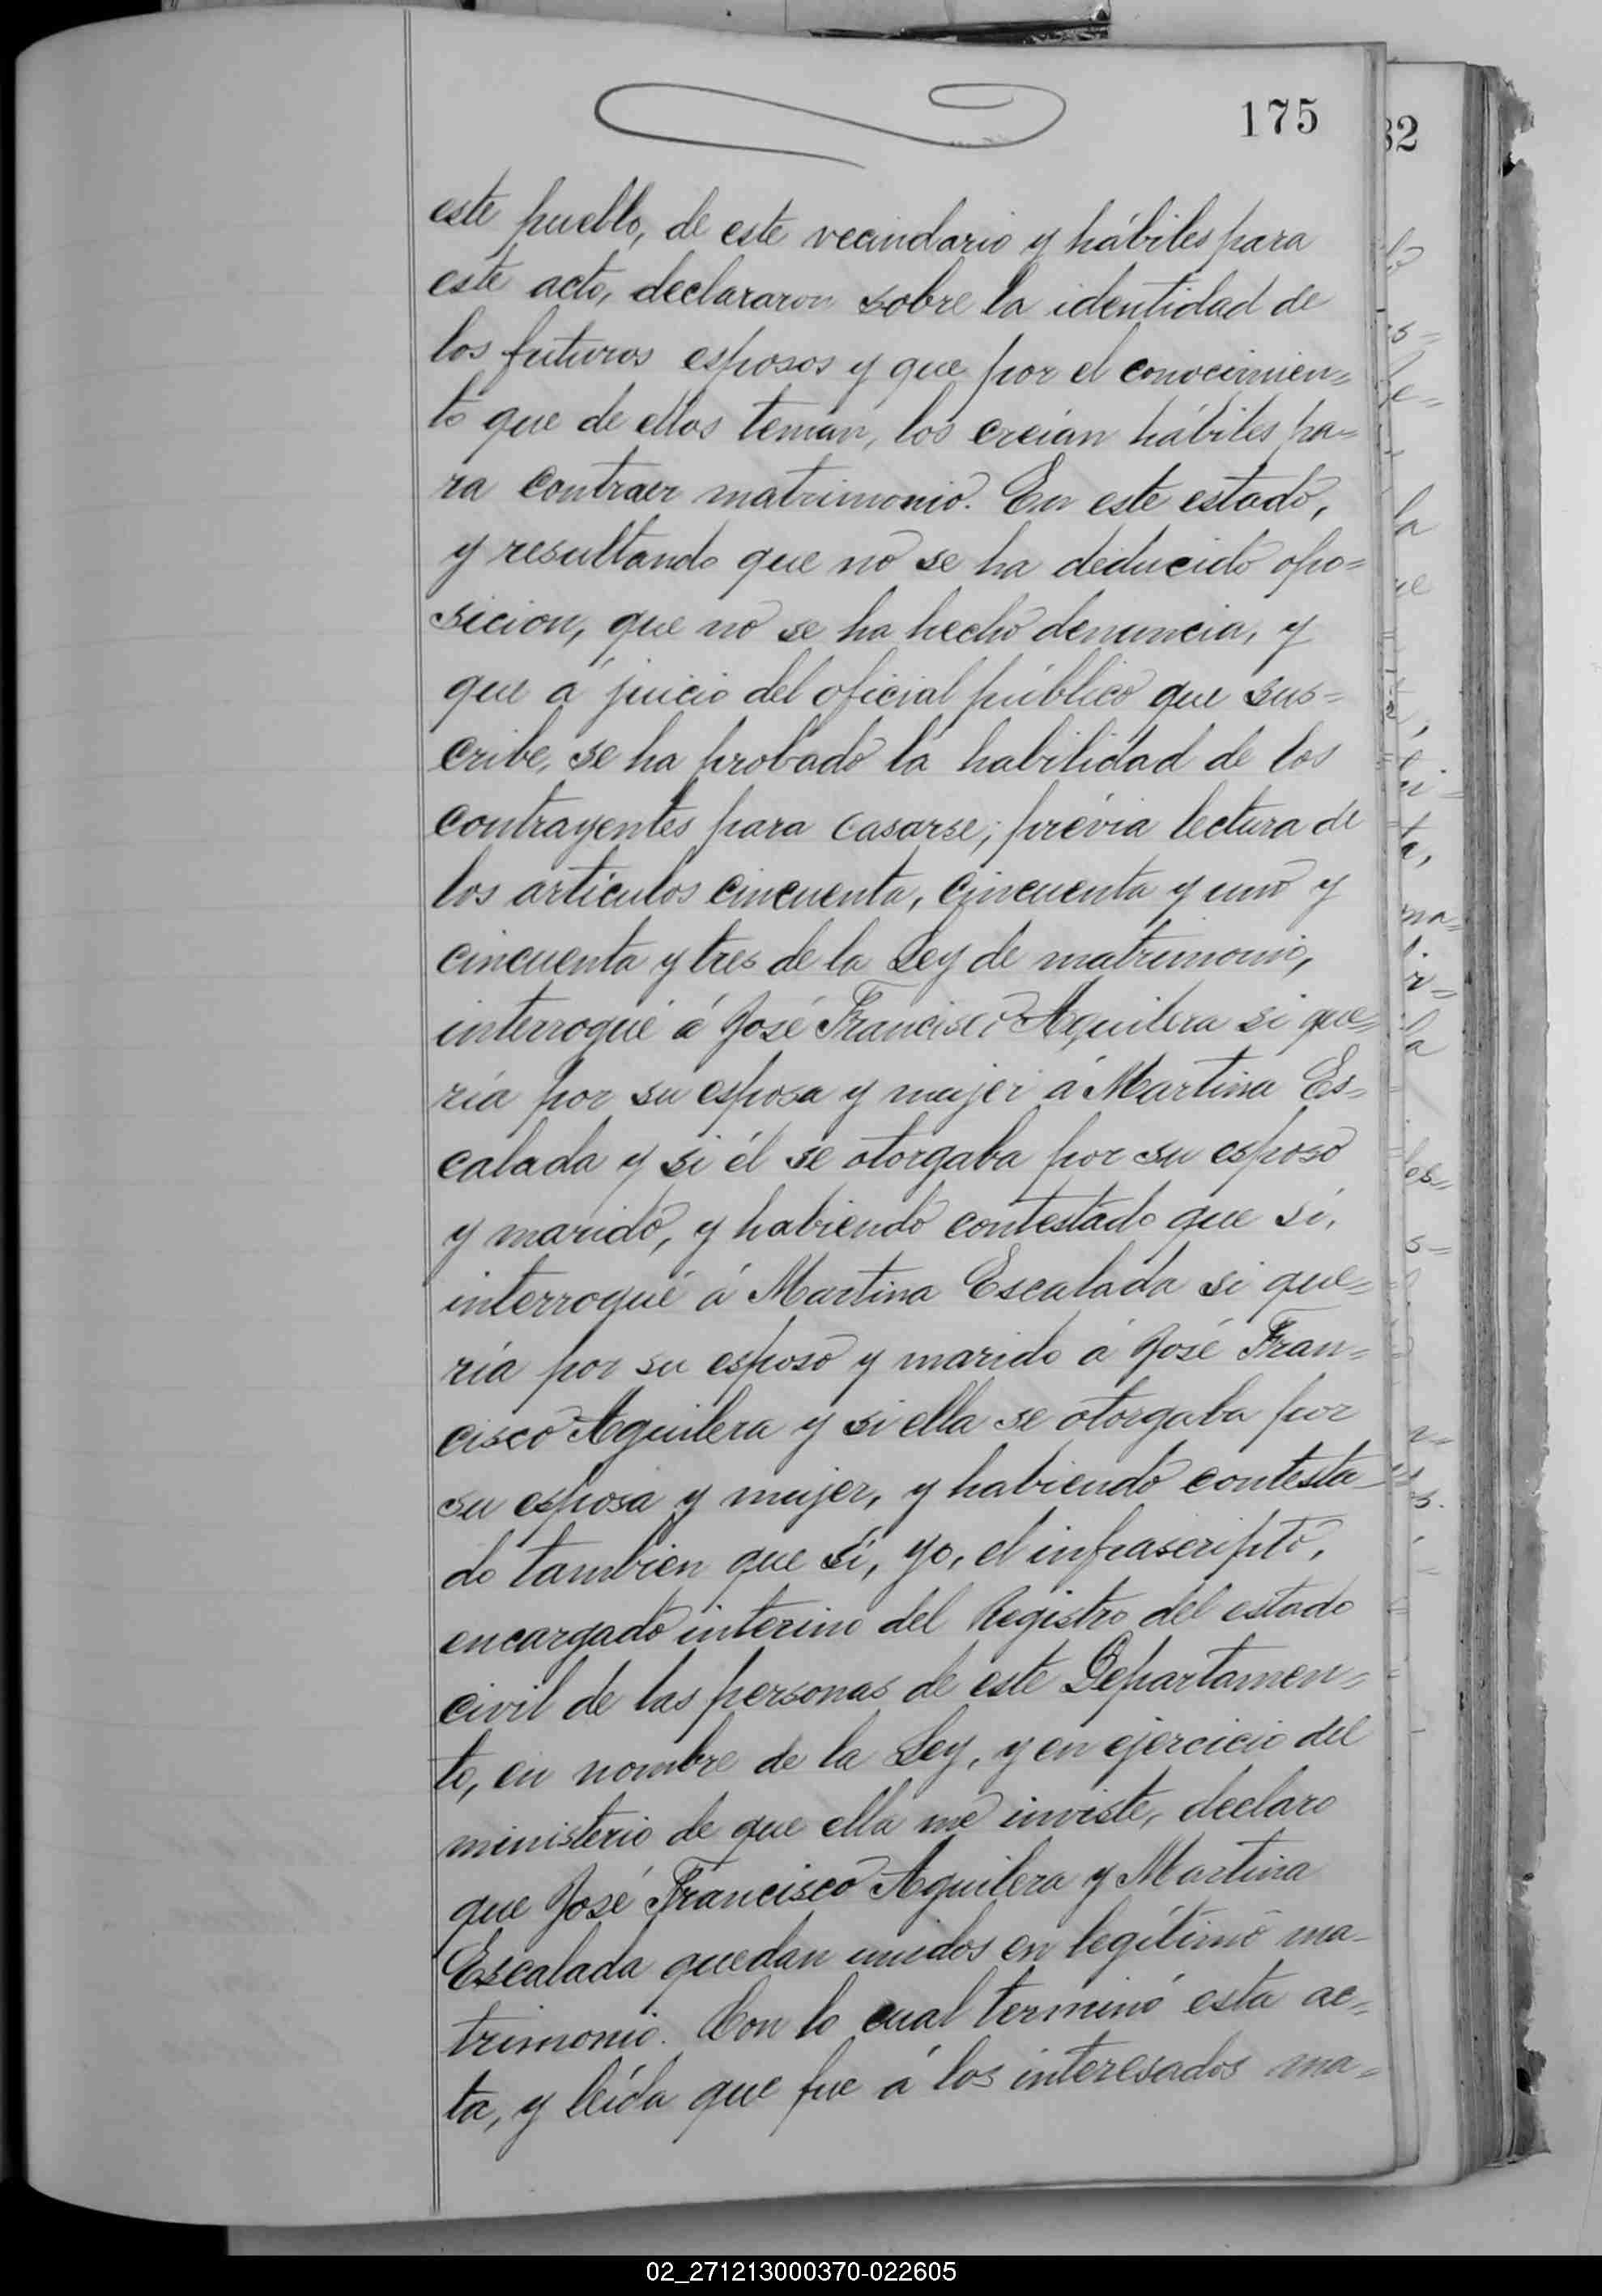 175
32
este pueblo, de este vecindario y hábiles para
este acto, declararon sobre la identidad de
los futuros esposos y que por el conocimien=
to que de ellos tenían, los creían hábiles pa=
ra contraer matrimonio. En este estado,
y resultando que no se ha deducido opo=
sicion, que no se ha hecho denuncia, y
que á juicio del oficial público que sus=
cribe, se ha probado la habilidad de los
contrayentes para casarse; prévia lectura de
los artículos cincuenta, cincuenta y uno y
cincuenta y tres de la Ley de matrimonio,
interrogué á José Francisco Aguilera si que=
ría por su esposa y mujer á Martina Es=
calada y si él se otorgaba por su esposo
y marido, y habiendo contestado que sí,
interrogué á Martina Escalada si que=
ría por su esposo y marido á José Fran=
cisco Aguilera y si ella se otorgaba por
su esposa y mujer, y habiendo contesta_
do tambien que sí, yo, el infrascripto,
encargado interino del Registro del estado
civil de las personas de este Departamen=
to, en nombre de la Ley, y en ejercicio del
ministerio de que ella me inviste, declaro
que José Francisco Aguilera y Martina
Escalada quedan unidos en legítimo ma_
trimonio. Con lo cual terminó esta ac=
ta, y leída que fue á los interesados ma=
02_271213000370-022605